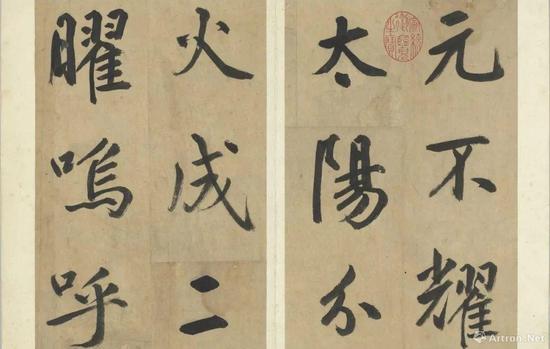 元不耀
太陽分
火成二
曜嗚呼
Artron.Net